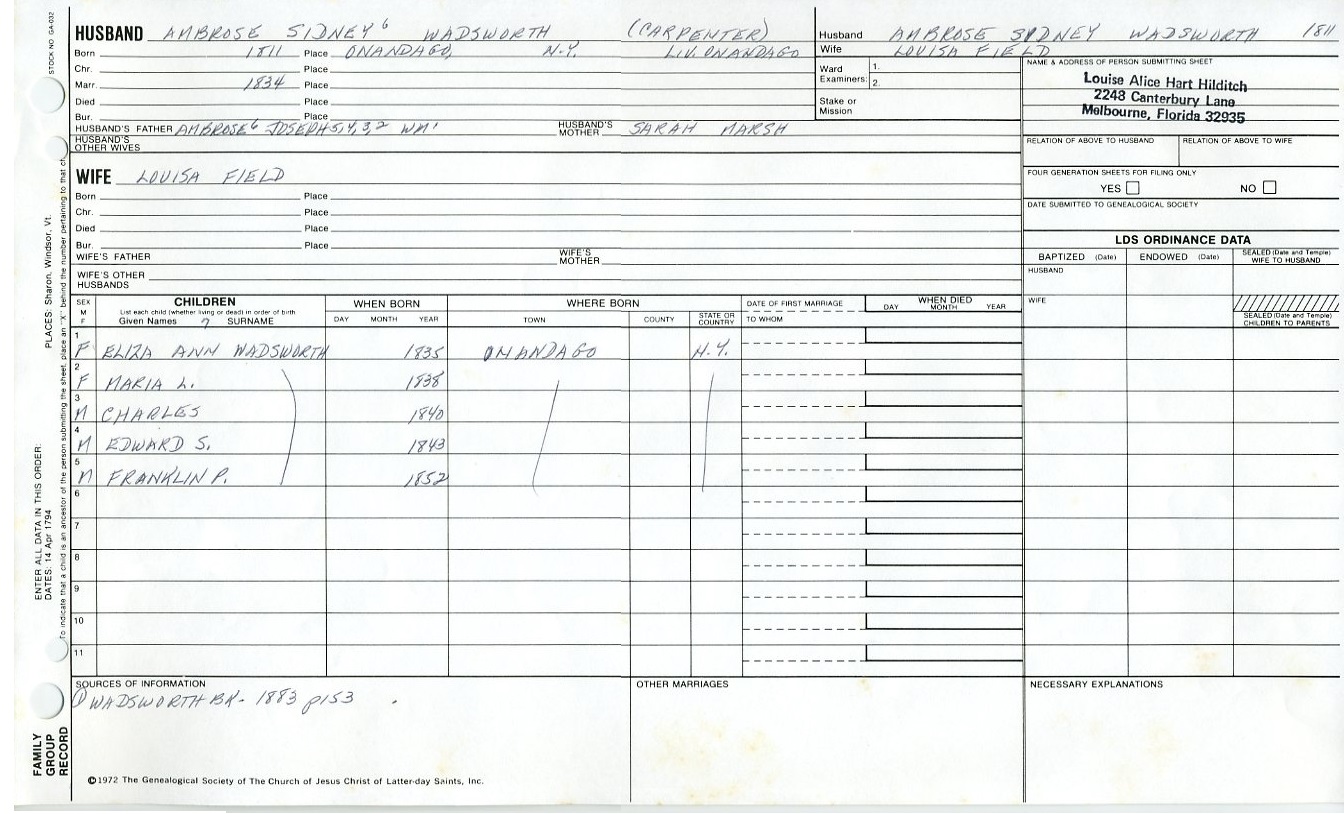 STOCK NO. GA-032
HUSBAND AMBROSE SIDNEY⁶ WADSWORTH (CARPENTER)
Born 1811 Place ONANDAGO, N.Y. LIV. ONANDAGO
Chr. Place
Marr. 1834 Place
Died Place
Bur. Place
HUSBAND'S FATHER AMBROSE⁶ JOSEPH 5,4,3,2 WM¹ HUSBAND'S MOTHER SARAH MARSH
HUSBAND'S OTHER WIVES
WIFE LOUISA FIELD
Born Place
Chr. Place
Died Place
Bur. Place
WIFE'S FATHER WIFE'S MOTHER
WIFE'S OTHER HUSBANDS
Husband AMBROSE SYDNEY WADSWORTH 1811
Wife LOUISA FIELD
Ward Examiners: 1. 2.
Stake or Mission
NAME & ADDRESS OF PERSON SUBMITTING SHEET
Louise Alice Hart Hilditch
2248 Canterbury Lane
Melbourne, Florida 32935
RELATION OF ABOVE TO HUSBAND RELATION OF ABOVE TO WIFE
FOUR GENERATION SHEETS FOR FILING ONLY
YES NO
DATE SUBMITTED TO GENEALOGICAL SOCIETY
LDS ORDINANCE DATA
BAPTIZED (Date) ENDOWED (Date) SEALED (Date and Temple) WIFE TO HUSBAND
HUSBAND
WIFE
SEALED (Date and Temple) CHILDREN TO PARENTS
SEX M F CHILDREN WHEN BORN WHERE BORN DATE OF FIRST MARRIAGE WHEN DIED
List each child (whether living or dead) in order of birth
Given Names ? SURNAME DAY MONTH YEAR TOWN COUNTY STATE OR COUNTRY TO WHOM DAY MONTH YEAR
1 F ELIZA ANN WADSWORTH 1835 ONANDAGO N.Y.
2 F MARIA L. 1838
3 M CHARLES 1840
4 M EDWARD S. 1843
5 M FRANKLIN P. 1852
6
7
8
9
10
11
SOURCES OF INFORMATION OTHER MARRIAGES NECESSARY EXPLANATIONS
① WADSWORTH BK- 1883 p153
©1972 The Genealogical Society of The Church of Jesus Christ of Latter-day Saints, Inc.
FAMILY GROUP RECORD
ENTER ALL DATA IN THIS ORDER:
DATES: 14 Apr 1794
PLACES: Sharon, Windsor, Vt.
To indicate that a child is an ancestor of the person submitting the sheet, place an "X" behind the number pertaining to that